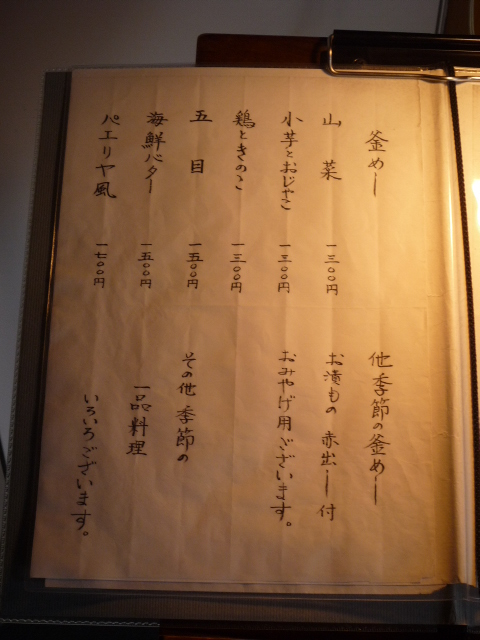 釜めし
山菜 一三〇〇円
小芋とおじゃこ 一三〇〇円
鶏ときのこ 一三〇〇円
五目 一五〇〇円
海鮮バター 一五〇〇円
パエリヤ風 一七〇〇円
他季節の釜めし
お漬もの 赤出し付
おみやげ用ございます。
その他季節の
一品料理
いろいろございます。